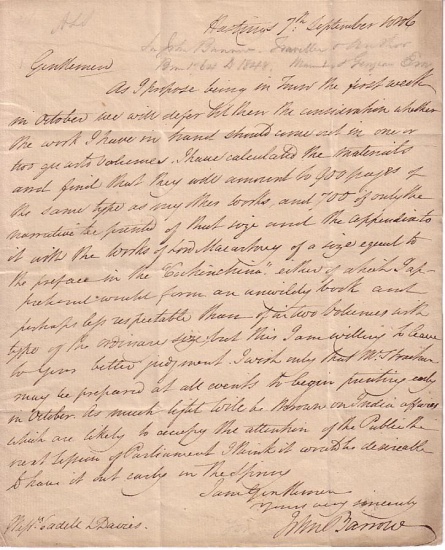 ALS
Hastings 7th September 1806
Sir John Barrow - Traveller & Author
Born 1764 D 1848.
Gentlemen
As I propose being in Town the first week
in October we will defer till then the consideration whether
the work I have in hand should come out in one or
two quarto volumes. I have calculated the materials
and find that they will amount to 900 pages of
the same type as my other works, and 700 if only the
narrative be printed of that size and the appendix to
it with the works of Lord Macartney of a size equal to
the preface in the "Cochinchina" either of which I ap-
prehend would form an unwieldy book and
perhaps less respectable than if in two volumes with
type of the ordinary size; but this I am willing to leave
to your better judgment. I wish only that Mr Strachan
may be prepared at all events to begin printing early
in October. As much light will be thrown on India affairs
which are likely to occupy the attention of the Public the
next Session of Parliament I think it would be desirable
to have it out early in the Spring
I am Gentlemen
Yours very sincerely
John Barrow
Messrs Cadell & Davies.